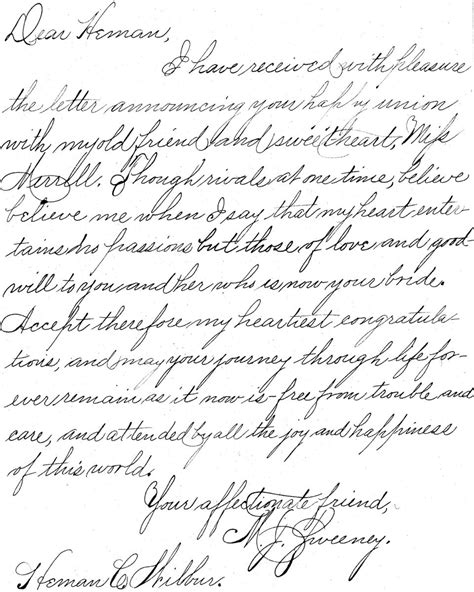 Dear Heman,
I have received with pleasure
the letter announcing your happy union
with my old friend and sweetheart, Miss
Harrell. Though rivals at one time, believe
believe me when I say that my heart enter
tains no passions but those of love and good-
will to you and her who is now your bride.
Accept therefore my heartiest congratula
tions, and may your journey through life for-
ever remain as it now is-free from trouble and
care, and attended by all the joy and happiness
of this world.
Your affectionate friend,
M. J. Sweeney.
Heman C. Wilbur.